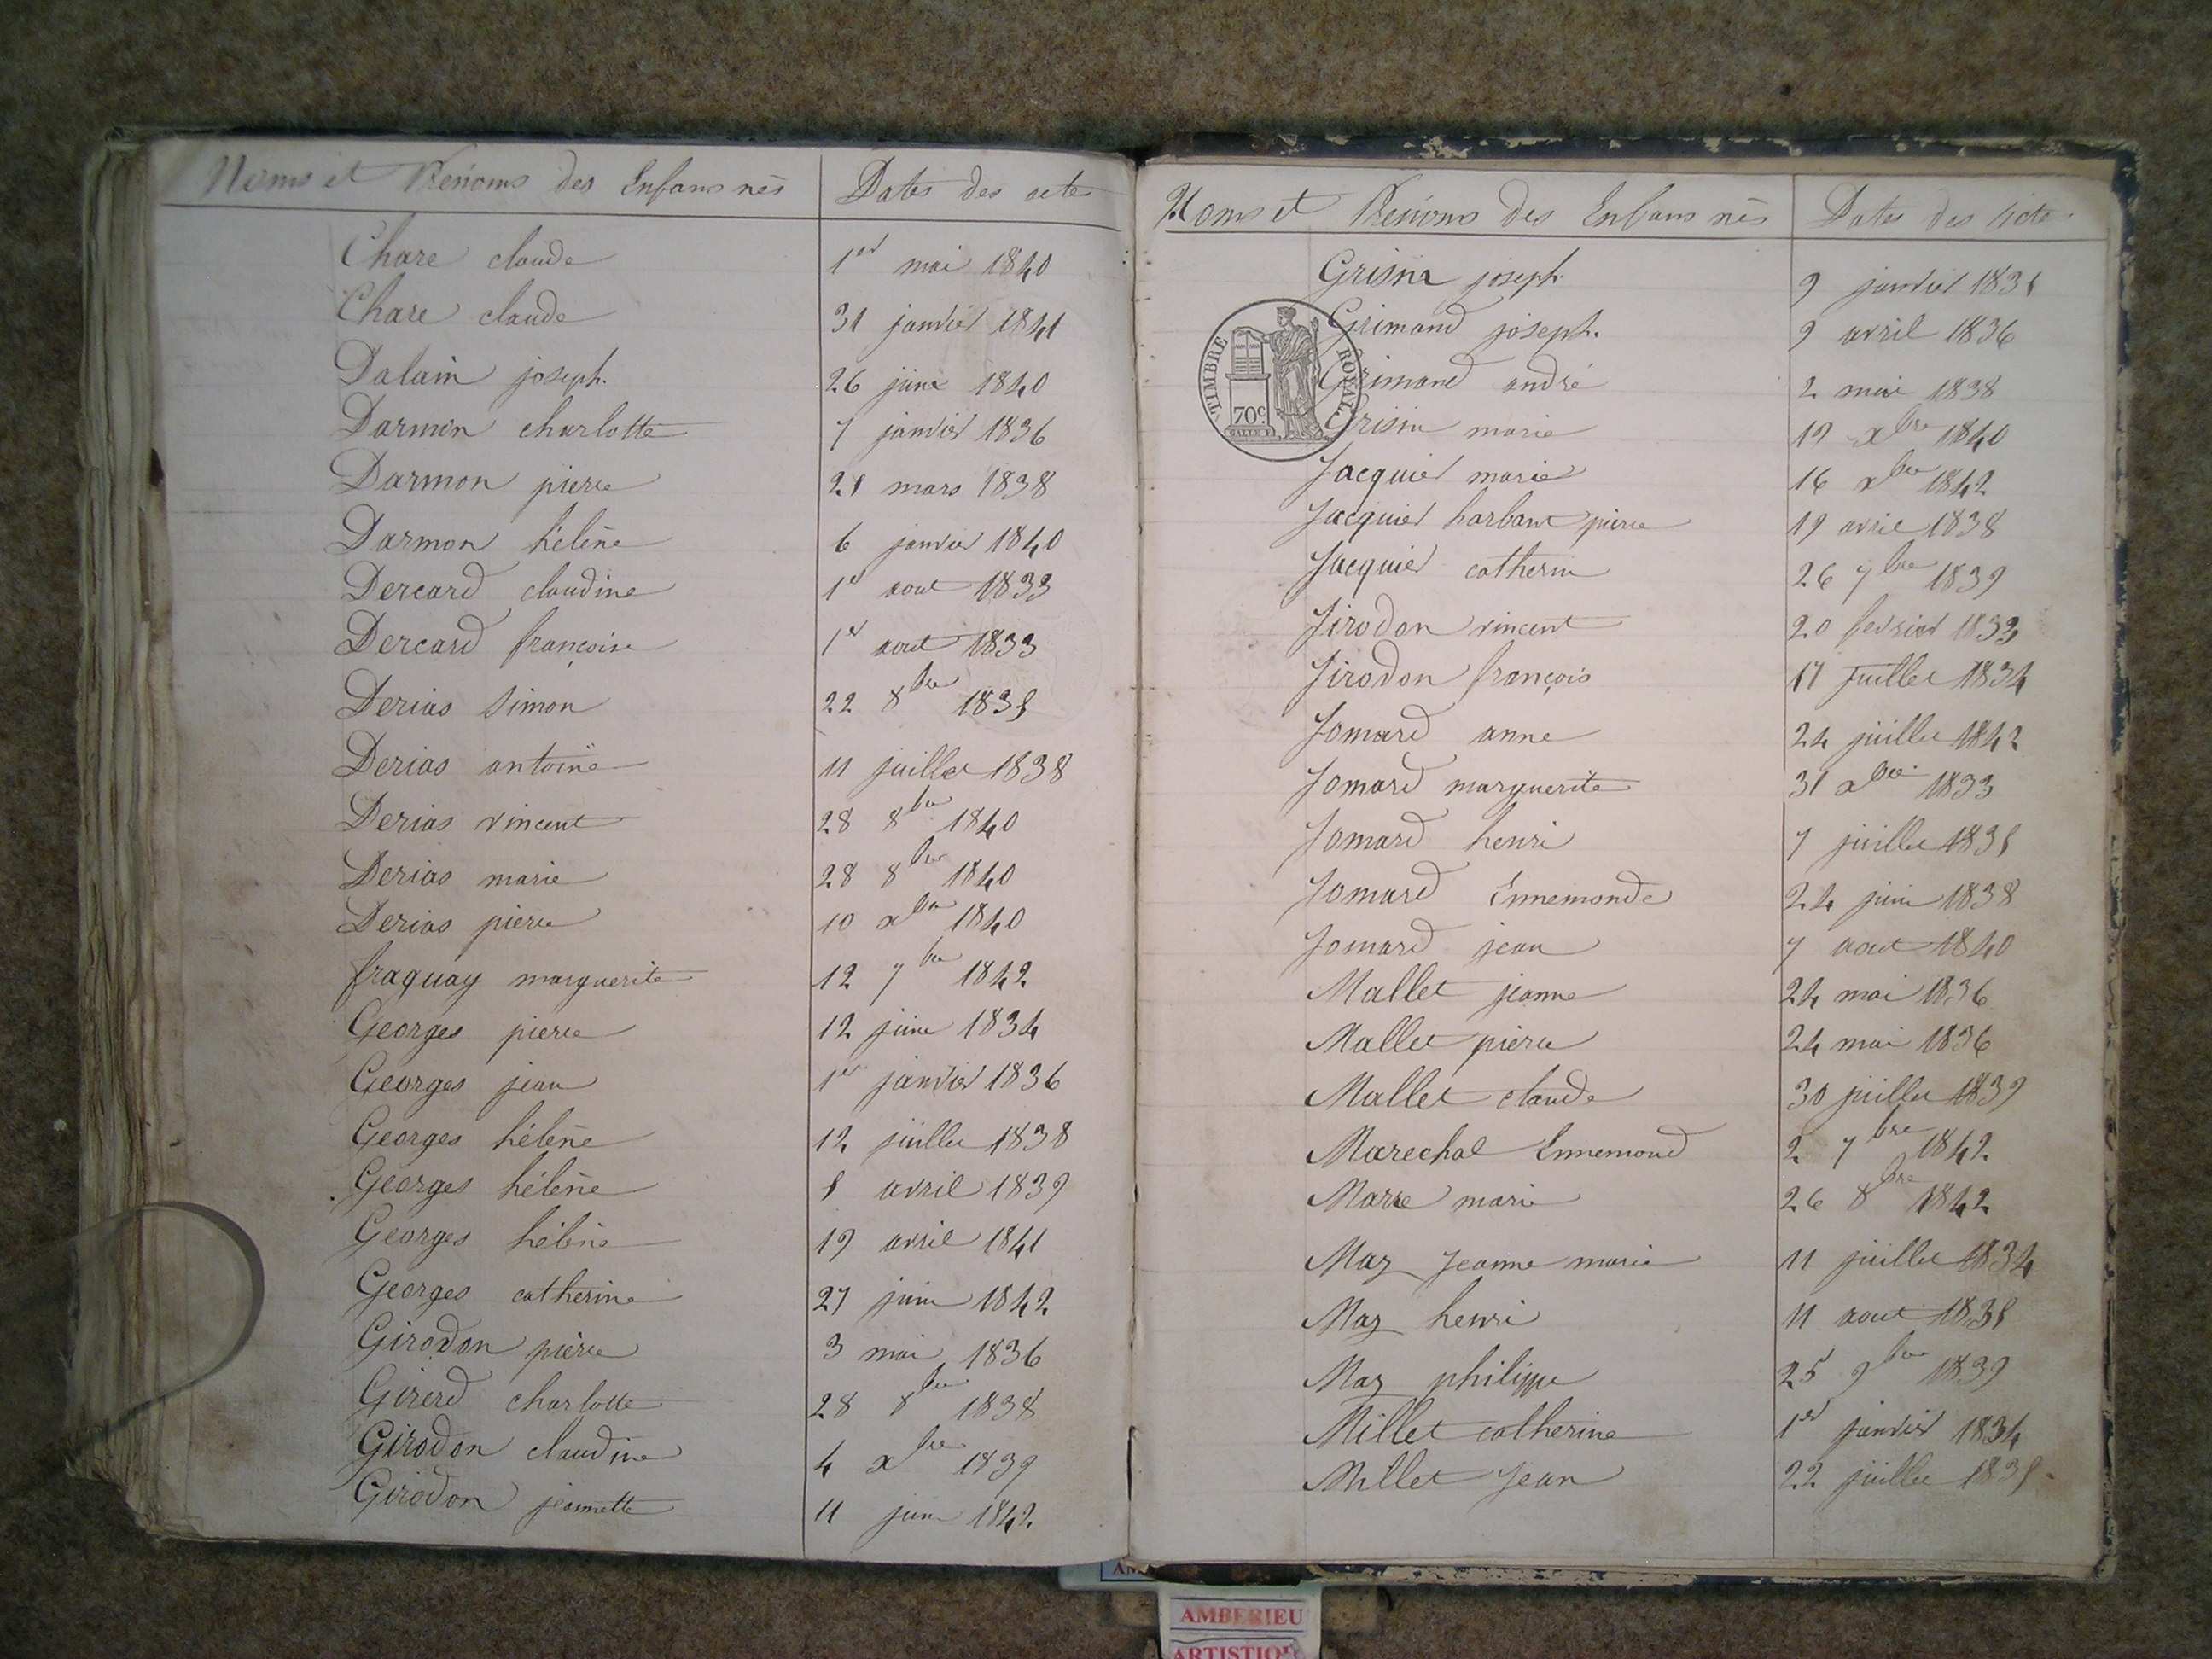 Noms et Prénoms des Enfans nés Dates des actes
Chare claude 1er mai 1840
Chare claude 31 janvier 1841
Dalain joseph. 26 juin 1840
Darmon charlotte 7 janvier 1836
Darmon pierre 28 mars 1838
Darmon hélène 6 janvier 1840
Dercard claudine 1er aout 1833
Dercard françoise 1er aout 1833
Derias Simon 22 8bre 1835
Derias antoine 11 juillet 1838
Derias vincent 28 8bre 1840
Derias marie 28 8bre 1840
Derias pierre 10 xbre 1840
fraquay marguerite 12 7bre 1842
Georges pierre 12 juin 1834
Georges jean 1er janvier 1836
Georges hélène 12 juillet 1838
Georges hélène 8 avril 1839
Georges hélène 19 avril 1841
Georges catherine 27 juin 1842
Girodon pierre 3 mai 1836
Girerd charlotte 28 8bre 1838
Girodon claudine 4 xbre 1839
Girodon jeannette 11 juin 1842
Noms et Prénoms des Enfans nés Dates des Actes
joseph 9 janvier 1835
Grimand joseph. 9 avril 1836
Grimand andré 2 mai 1838
marie 19 xbre 1840
Jacquier marie 16 xbre 1842
Jacquier pierre 19 avril 1838
Jacquier catherine 26 7bre 1839
Jirodon vincent 20 fevrier 1833
Jirodon françois 17 Juillet 1834
Jomard anne 24 juillet 1842
Jomard marguerite 31 xbre 1833
Jomard henri 7 juillet 1835
Jomard Ennemonde 24 juin 1838
Jomard jean 7 aout 1840
Mallet jeanne 24 mai 1836
Mallet pierre 24 mai 1836
Mallet claude 30 juillet 1839
Marechal Ennemond 2 7bre 1842
Marre marie 26 8bre 1842
Maz Jeanne marie 11 juillet 1834
Maz henri 11 aout 1835
Maz philippe 25 9bre 1839
Millet catherine 1er janvier 1834
Millet Jean 22 juillet 1835
TIMBRE ROYAL
70c.
AMBERIEU
ARTISTIQUE